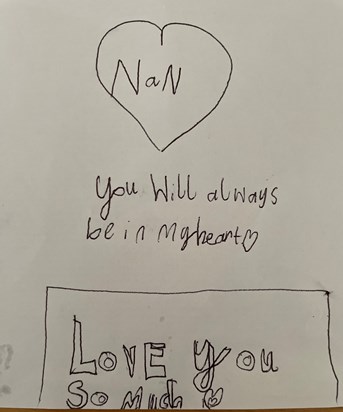 NaN
you Will always
be in My heart
LOVE you
So Much